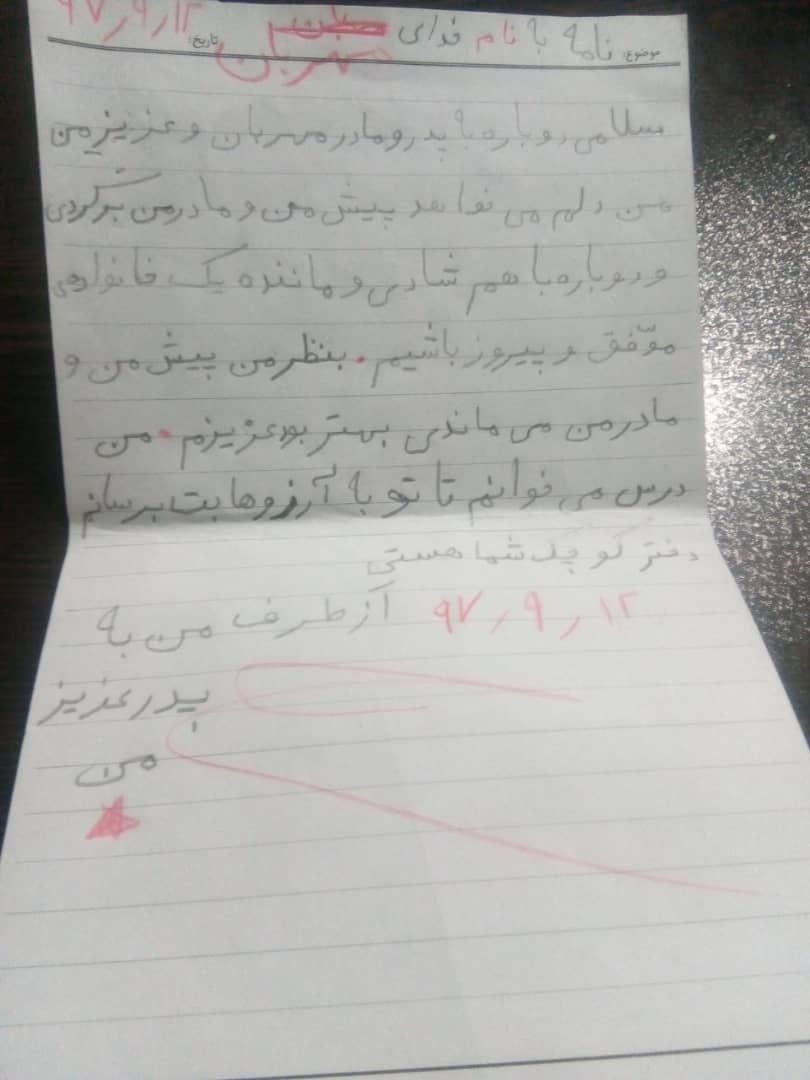 موضوع: نامه با نام خدای مهربان تاریخ: ۹۷٫۹٫۱۲
سلامی دوباره با پدر و مادر مهربان و عزیز من
من دلم می خواهد پیش من و مادر من برگردی
و دوباره با هم شادی و ماننده یک خانواده‌ی
موّفق و پیروز باشیم. بنظر من پیش من و
مادر من می ماندی بهتر بود عزیزم. من
درس می خوانم تا تو به آرزوهایت برسانم
دختر کوچک شما هستی
۹۷٫۹٫۱۲ از طرف من به
پدر عزیز
من